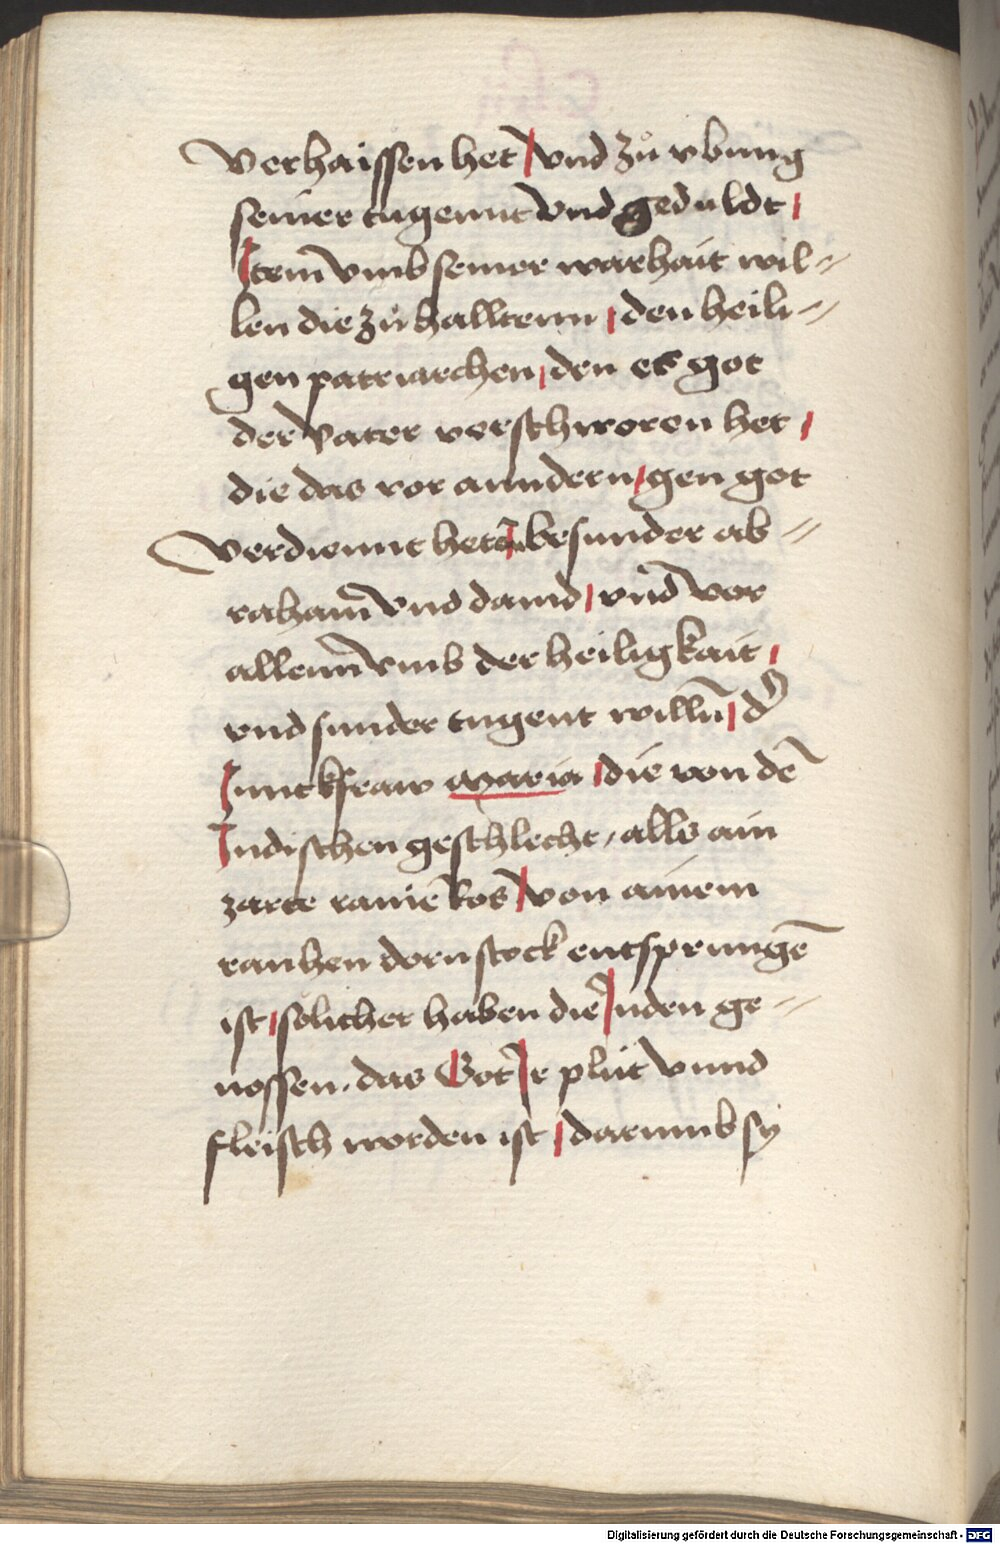 verhaissen het / vnd zů vbung
seiner tugennt vnd geduldt /
Item vmb seiner warhait wil=
len die zů halltenn / den heili=
gen patriarchen / den es got
der vater verschworen het /
die das vor anndern / gen got
verdiennt hetn̄ / besunder ab=
raham̄ vnd dauid / vnd vor
allenn̄ vmb der heiligkait /
vnd sunder tugent willn̄ / dr̄
Junckfraw maria / die von dē
Judischen geschlecht / alls ain
zarte rainē Ros / von ainem
rauhen dornstock entsprungē
ist / sölicher haben die Juden ge=
nossen. das Got Jr plůt vnnd
fleisch worden ist / darumb sy
Digitalisierung gefördert durch die Deutsche Forschungsgemeinschaft - DFG